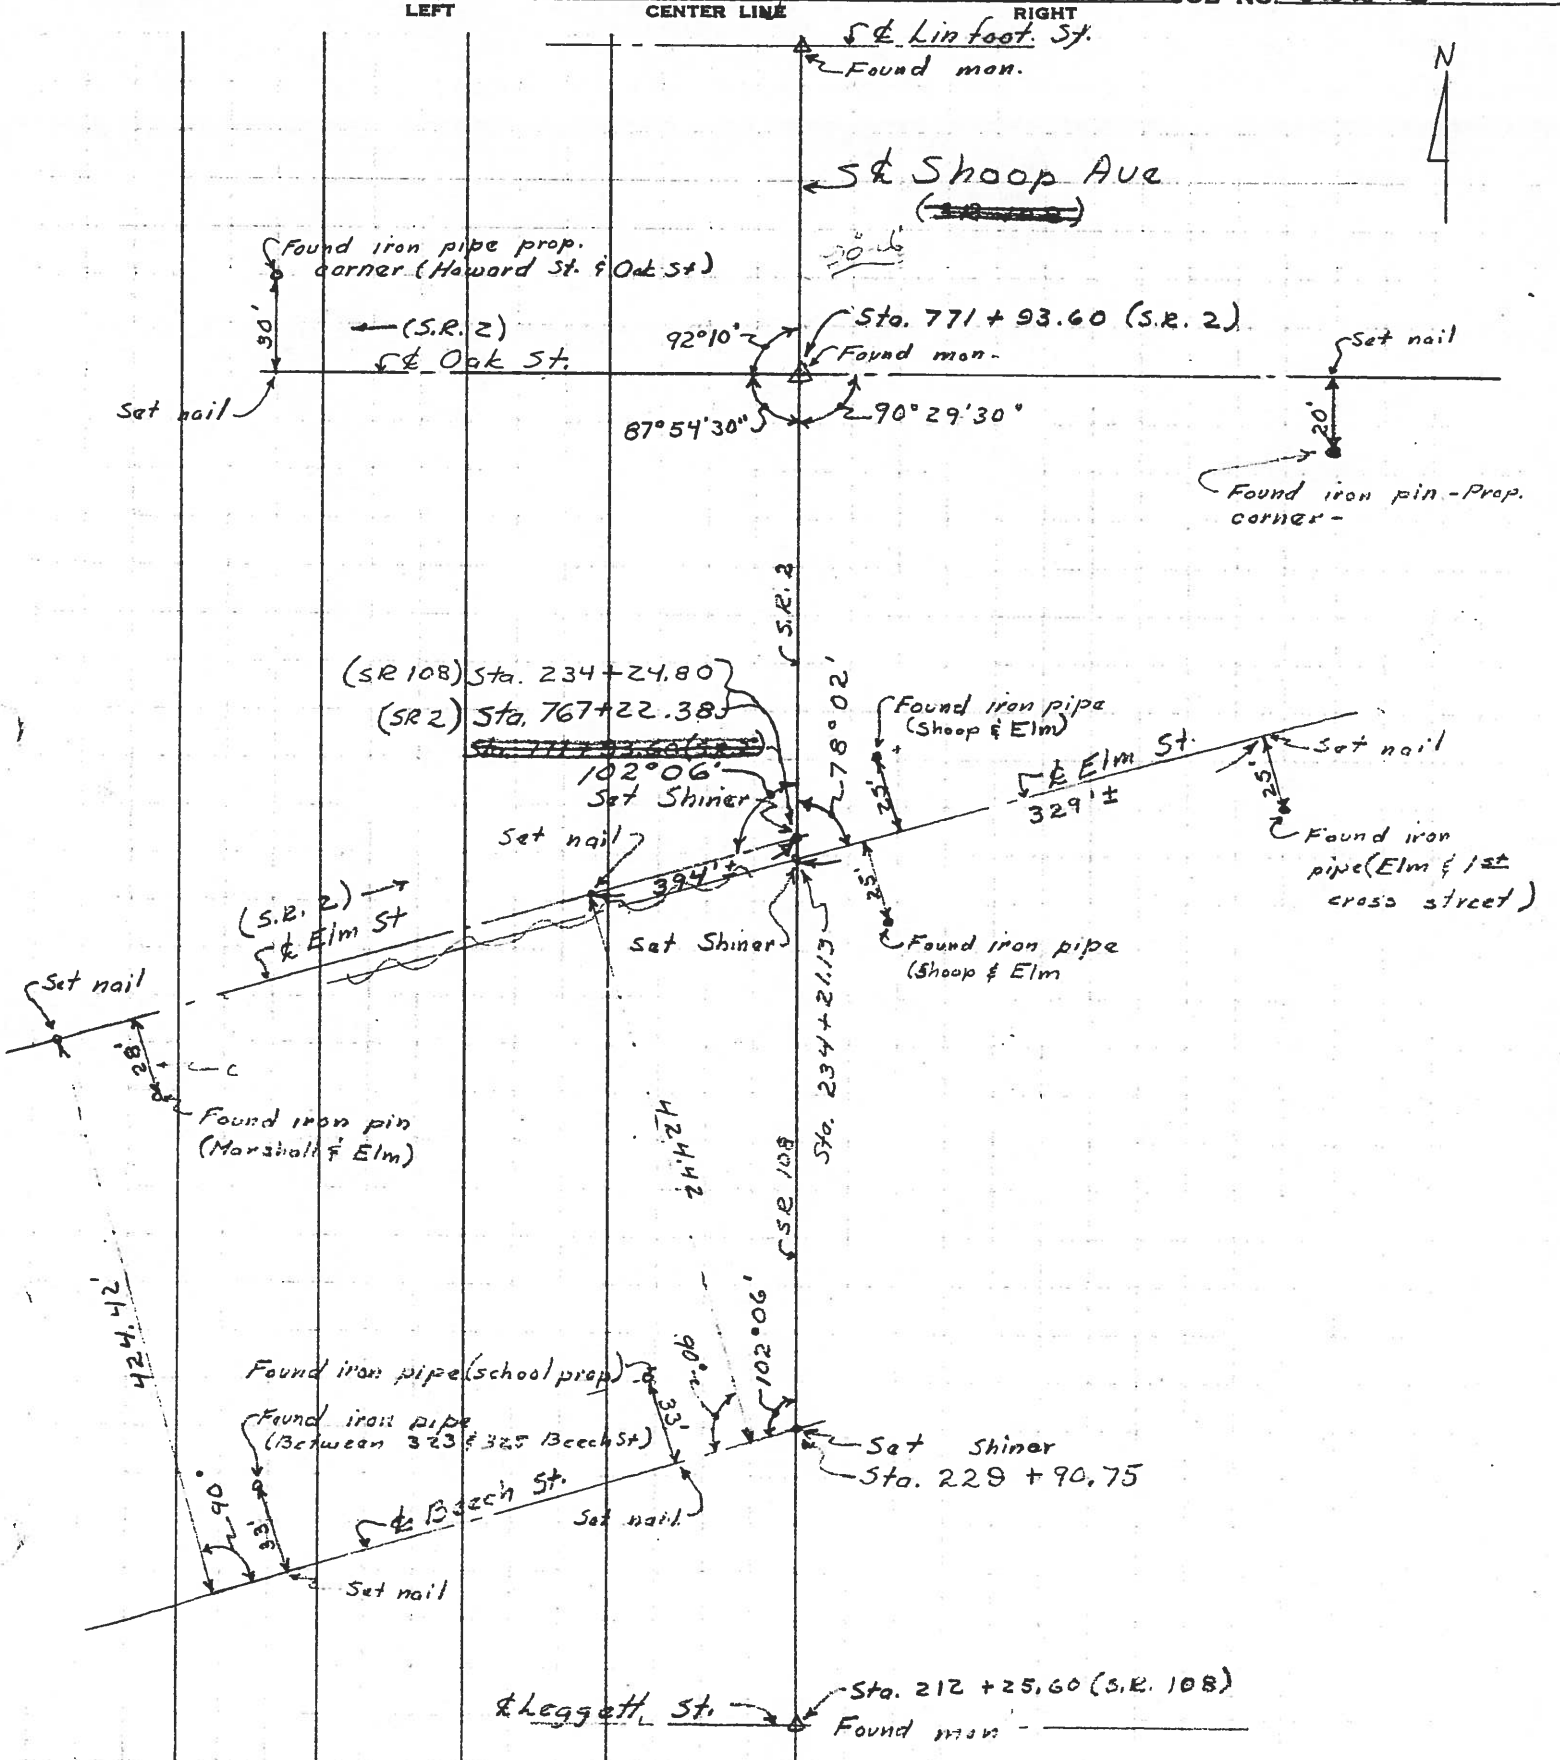 LEFT
CENTER LINE
RIGHT
℄ Linfoot. St.
Found mon.
N
S ℄ Shoop Ave
Found iron pipe prop.
corner (Howard St. & Oak St)
30'
← (S.R. 2)
℄ Oak St.
Set nail
92°10'
Sta. 771 + 93.60 (S.R. 2)
Found mon.
87°54'30"
90°29'30"
Set nail
20'
Found iron pin - Prop.
corner -
S.R. 2
(SR 108) Sta. 234+24.80
(SR 2) Sta. 767+22.38
Sta. 771+93.60 (S.R. 2)
102°06'
Set Shiner
78°02'
Found iron pipe
(Shoop & Elm)
25'
℄ Elm St.
329'±
Set nail
25'
Found iron
pipe (Elm & 1st
cross street)
Set nail
394'±
25'
Found iron pipe
(Shoop & Elm
(S.R. 2) →
℄ Elm St
Set Shiner
Sta. 234+21.19
Set nail
28'
C
Found iron pin
(Marshall & Elm)
424.42
SR 108
424.42'
90°
102°06'
Found iron pipe (school prop)
33'
Found iron pipe
(Between 323 & 325 Beech St)
Set Shiner
Sta. 229 + 90.75
90°
33'
℄ Beech St.
Set nail
Set nail
℄ Leggett, St.
Sta. 212 + 25.60 (S.R. 108)
Found mon -